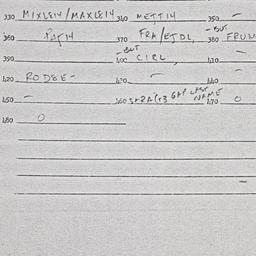 330 MIXLE14/MAXLE14 340 METT14 350 -
360 PAT14 370 FRA/ETDL, 380 -BUT FRUN
390 400 -BUT CIRL, 410 -
420 RODEE- 430 - 440
450 - 460 SARA(+3 GAP LAST NAME 470 0
480 0